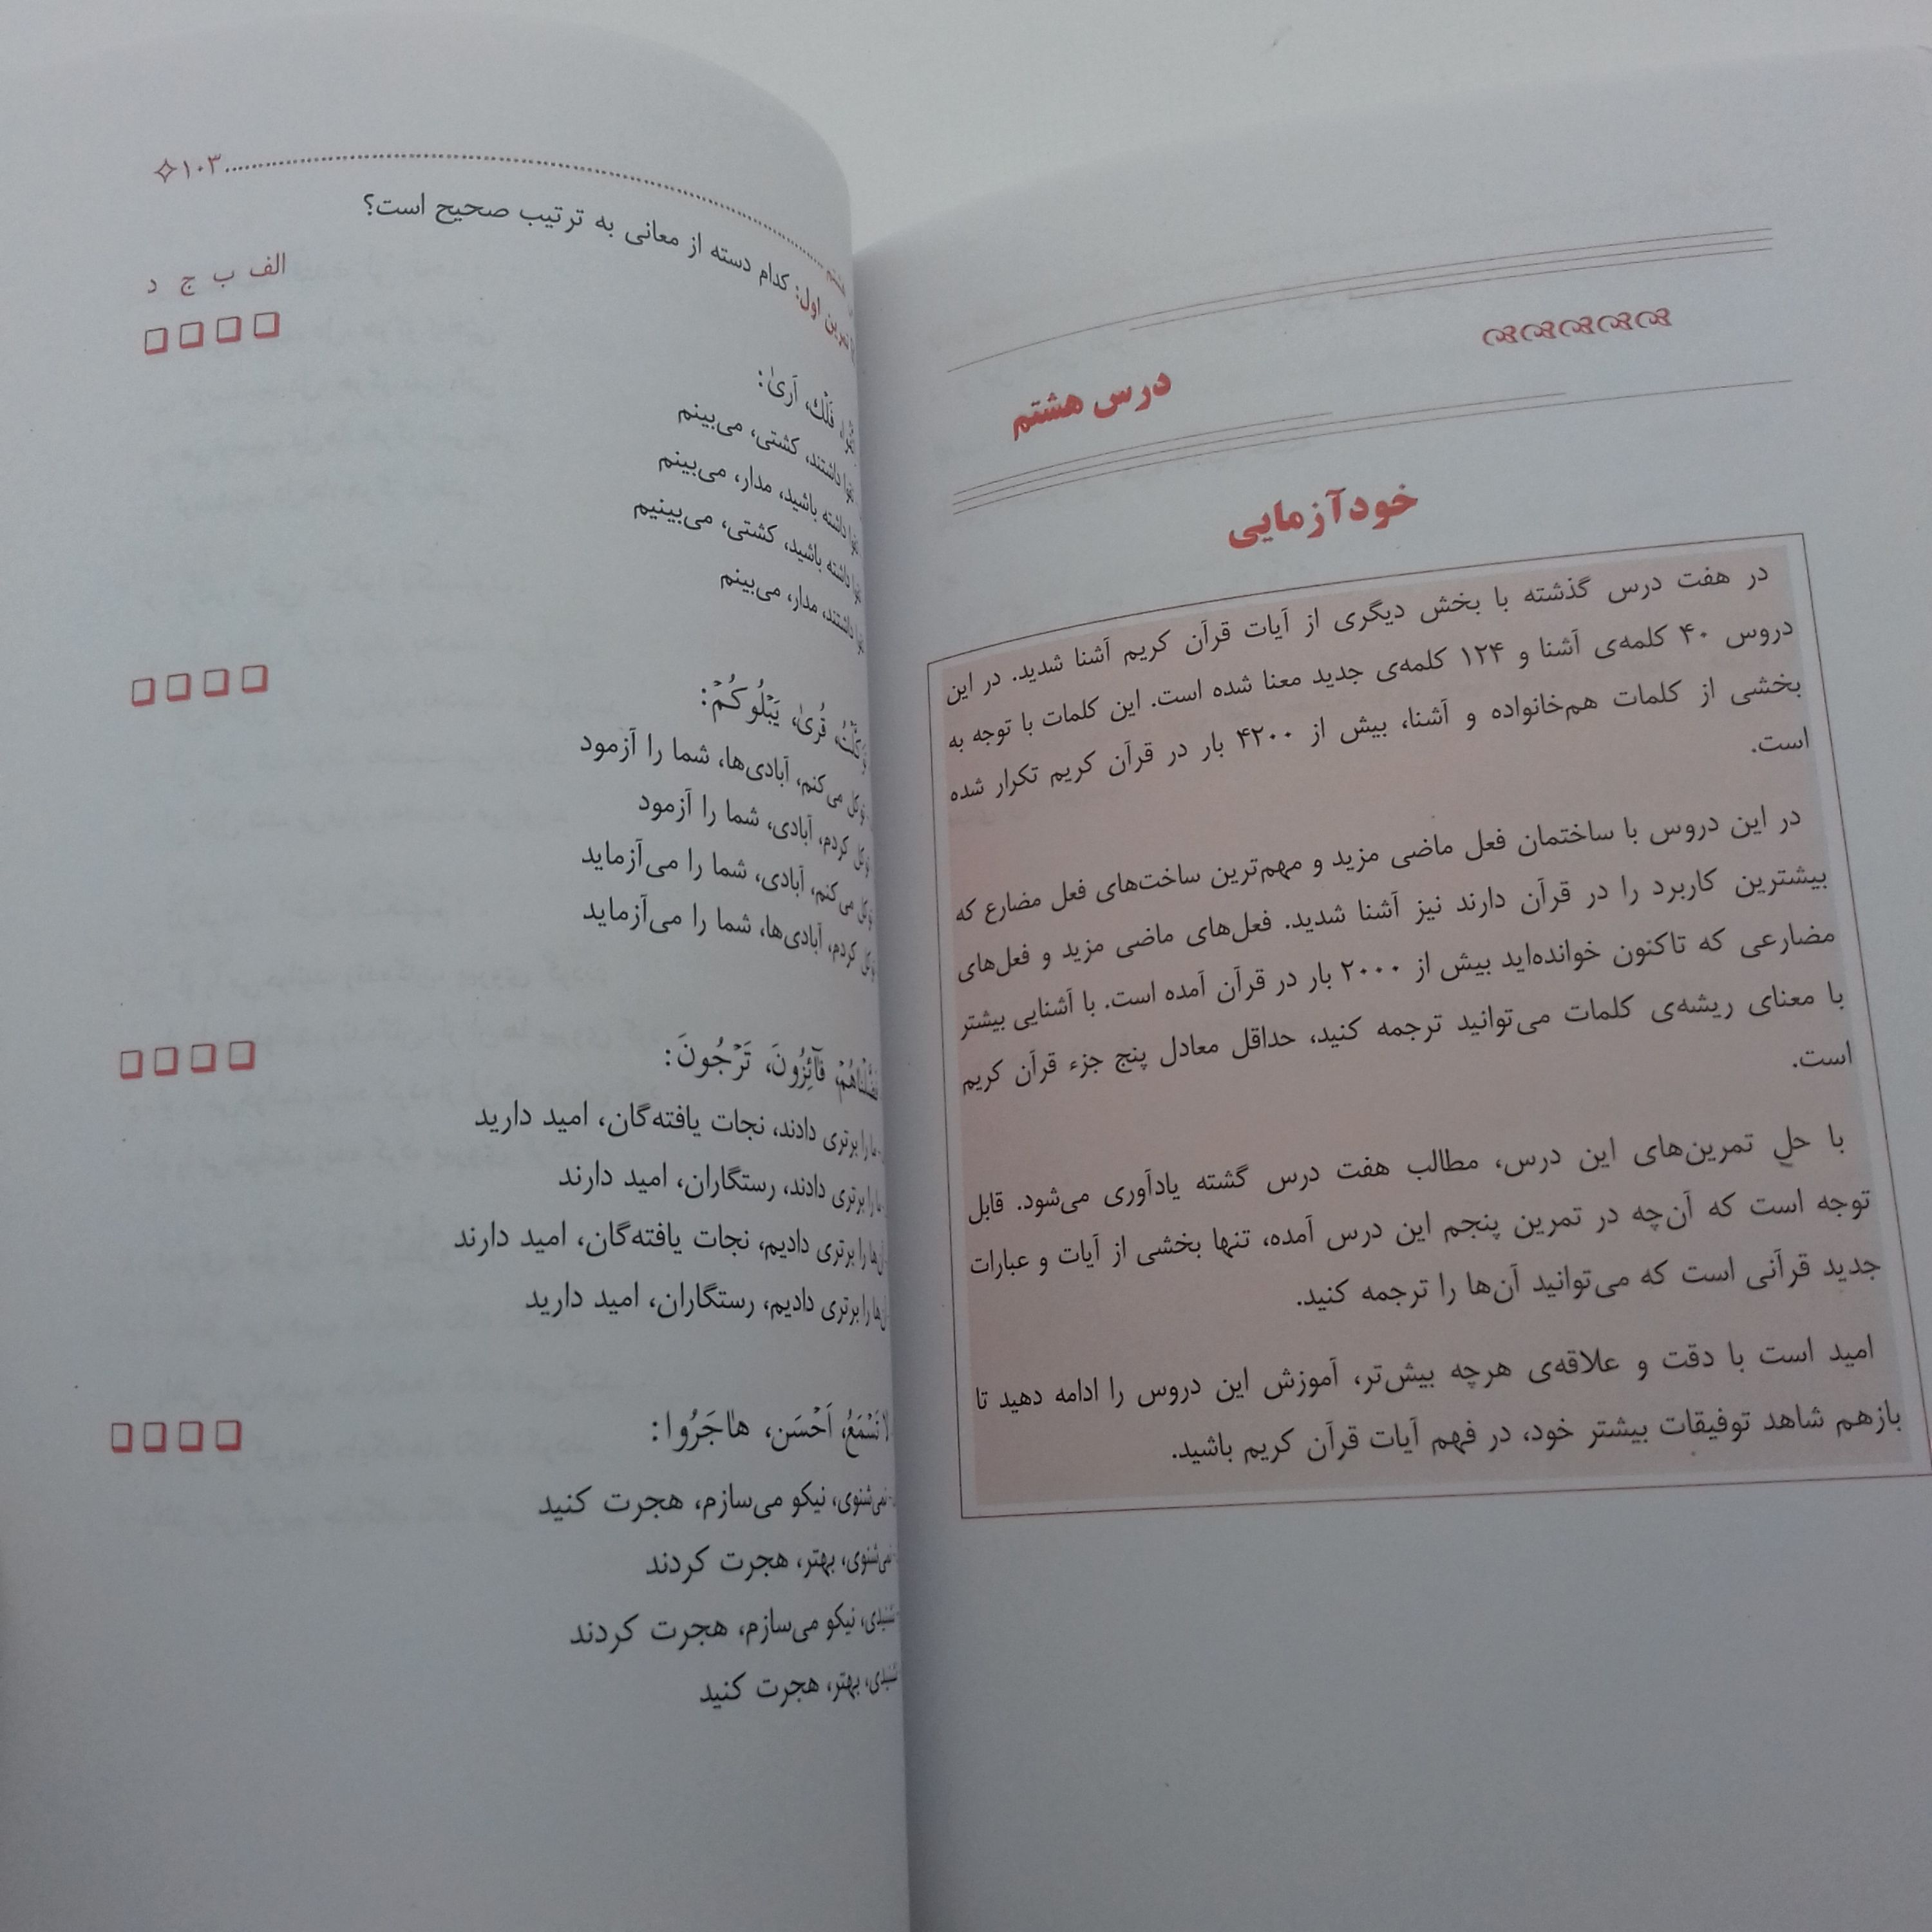 درس هشتم
خودآزمایی
در هفت درس گذشته با بخش دیگری از آیات قرآن کریم آشنا شدید. در این
دروس ۴۰ کلمه‌ی آشنا و ۱۲۴ کلمه‌ی جدید معنا شده است. این کلمات با توجه به
بخشی از کلمات هم‌خانواده و آشنا، بیش از ۴۲۰۰ بار در قرآن کریم تکرار شده
است.
در این دروس با ساختمان فعل ماضی مزید و مهم‌ترین ساخت‌های فعل مضارع که
بیشترین کاربرد را در قرآن دارند نیز آشنا شدید. فعل‌های ماضی مزید و فعل‌های
مضارعی که تاکنون خوانده‌اید بیش از ۲۰۰۰ بار در قرآن آمده است. با آشنایی بیشتر
با معنای ریشه‌ی کلمات می‌توانید ترجمه کنید، حداقل معادل پنج جزء قرآن کریم
است.
با حل تمرین‌های این درس، مطالب هفت درس گشته یادآوری می‌شود. قابل
توجه است که آن‌چه در تمرین پنجم این درس آمده، تنها بخشی از آیات و عبارات
جدید قرآنی است که می‌توانید آن‌ها را ترجمه کنید.
امید است با دقت و علاقه‌ی هرچه بیش‌تر، آموزش این دروس را ادامه دهید تا
بازهم شاهد توفیقات بیشتر خود، در فهم آیات قرآن کریم باشید.
۱۰۳
تمرین اول: کدام دسته از معانی به ترتیب صحیح است؟
الف ب ج د
فُلْك، اَریٰ:
داشتند، کشتی، می‌بینم
داشته باشید، مدار، می‌بینم
داشته باشید، کشتی، می‌بینیم
داشتند، مدار، می‌بینم
قُریٰ، یَبْلُوکُمْ:
توکل می‌کنم، آبادی‌ها، شما را آزمود
توکل کردم، آبادی، شما را آزمود
توکل می‌کنم، آبادی، شما را می‌آزماید
توکل کردم، آبادی‌ها، شما را می‌آزماید
فَآئِزُونَ، تَرْجُونَ:
را برتری دادند، نجات یافته‌گان، امید دارید
را برتری دادند، رستگاران، امید دارند
را برتری دادیم، نجات یافته‌گان، امید دارند
را برتری دادیم، رستگاران، امید دارید
لا تَسْمَعُ، اَحْسَن، هاجَرُوا:
نمی‌شنوی، نیکو می‌سازم، هجرت کنید
نمی‌شنوی، بهتر، هجرت کردند
نیکو می‌سازم، هجرت کردند
بهتر، هجرت کنید